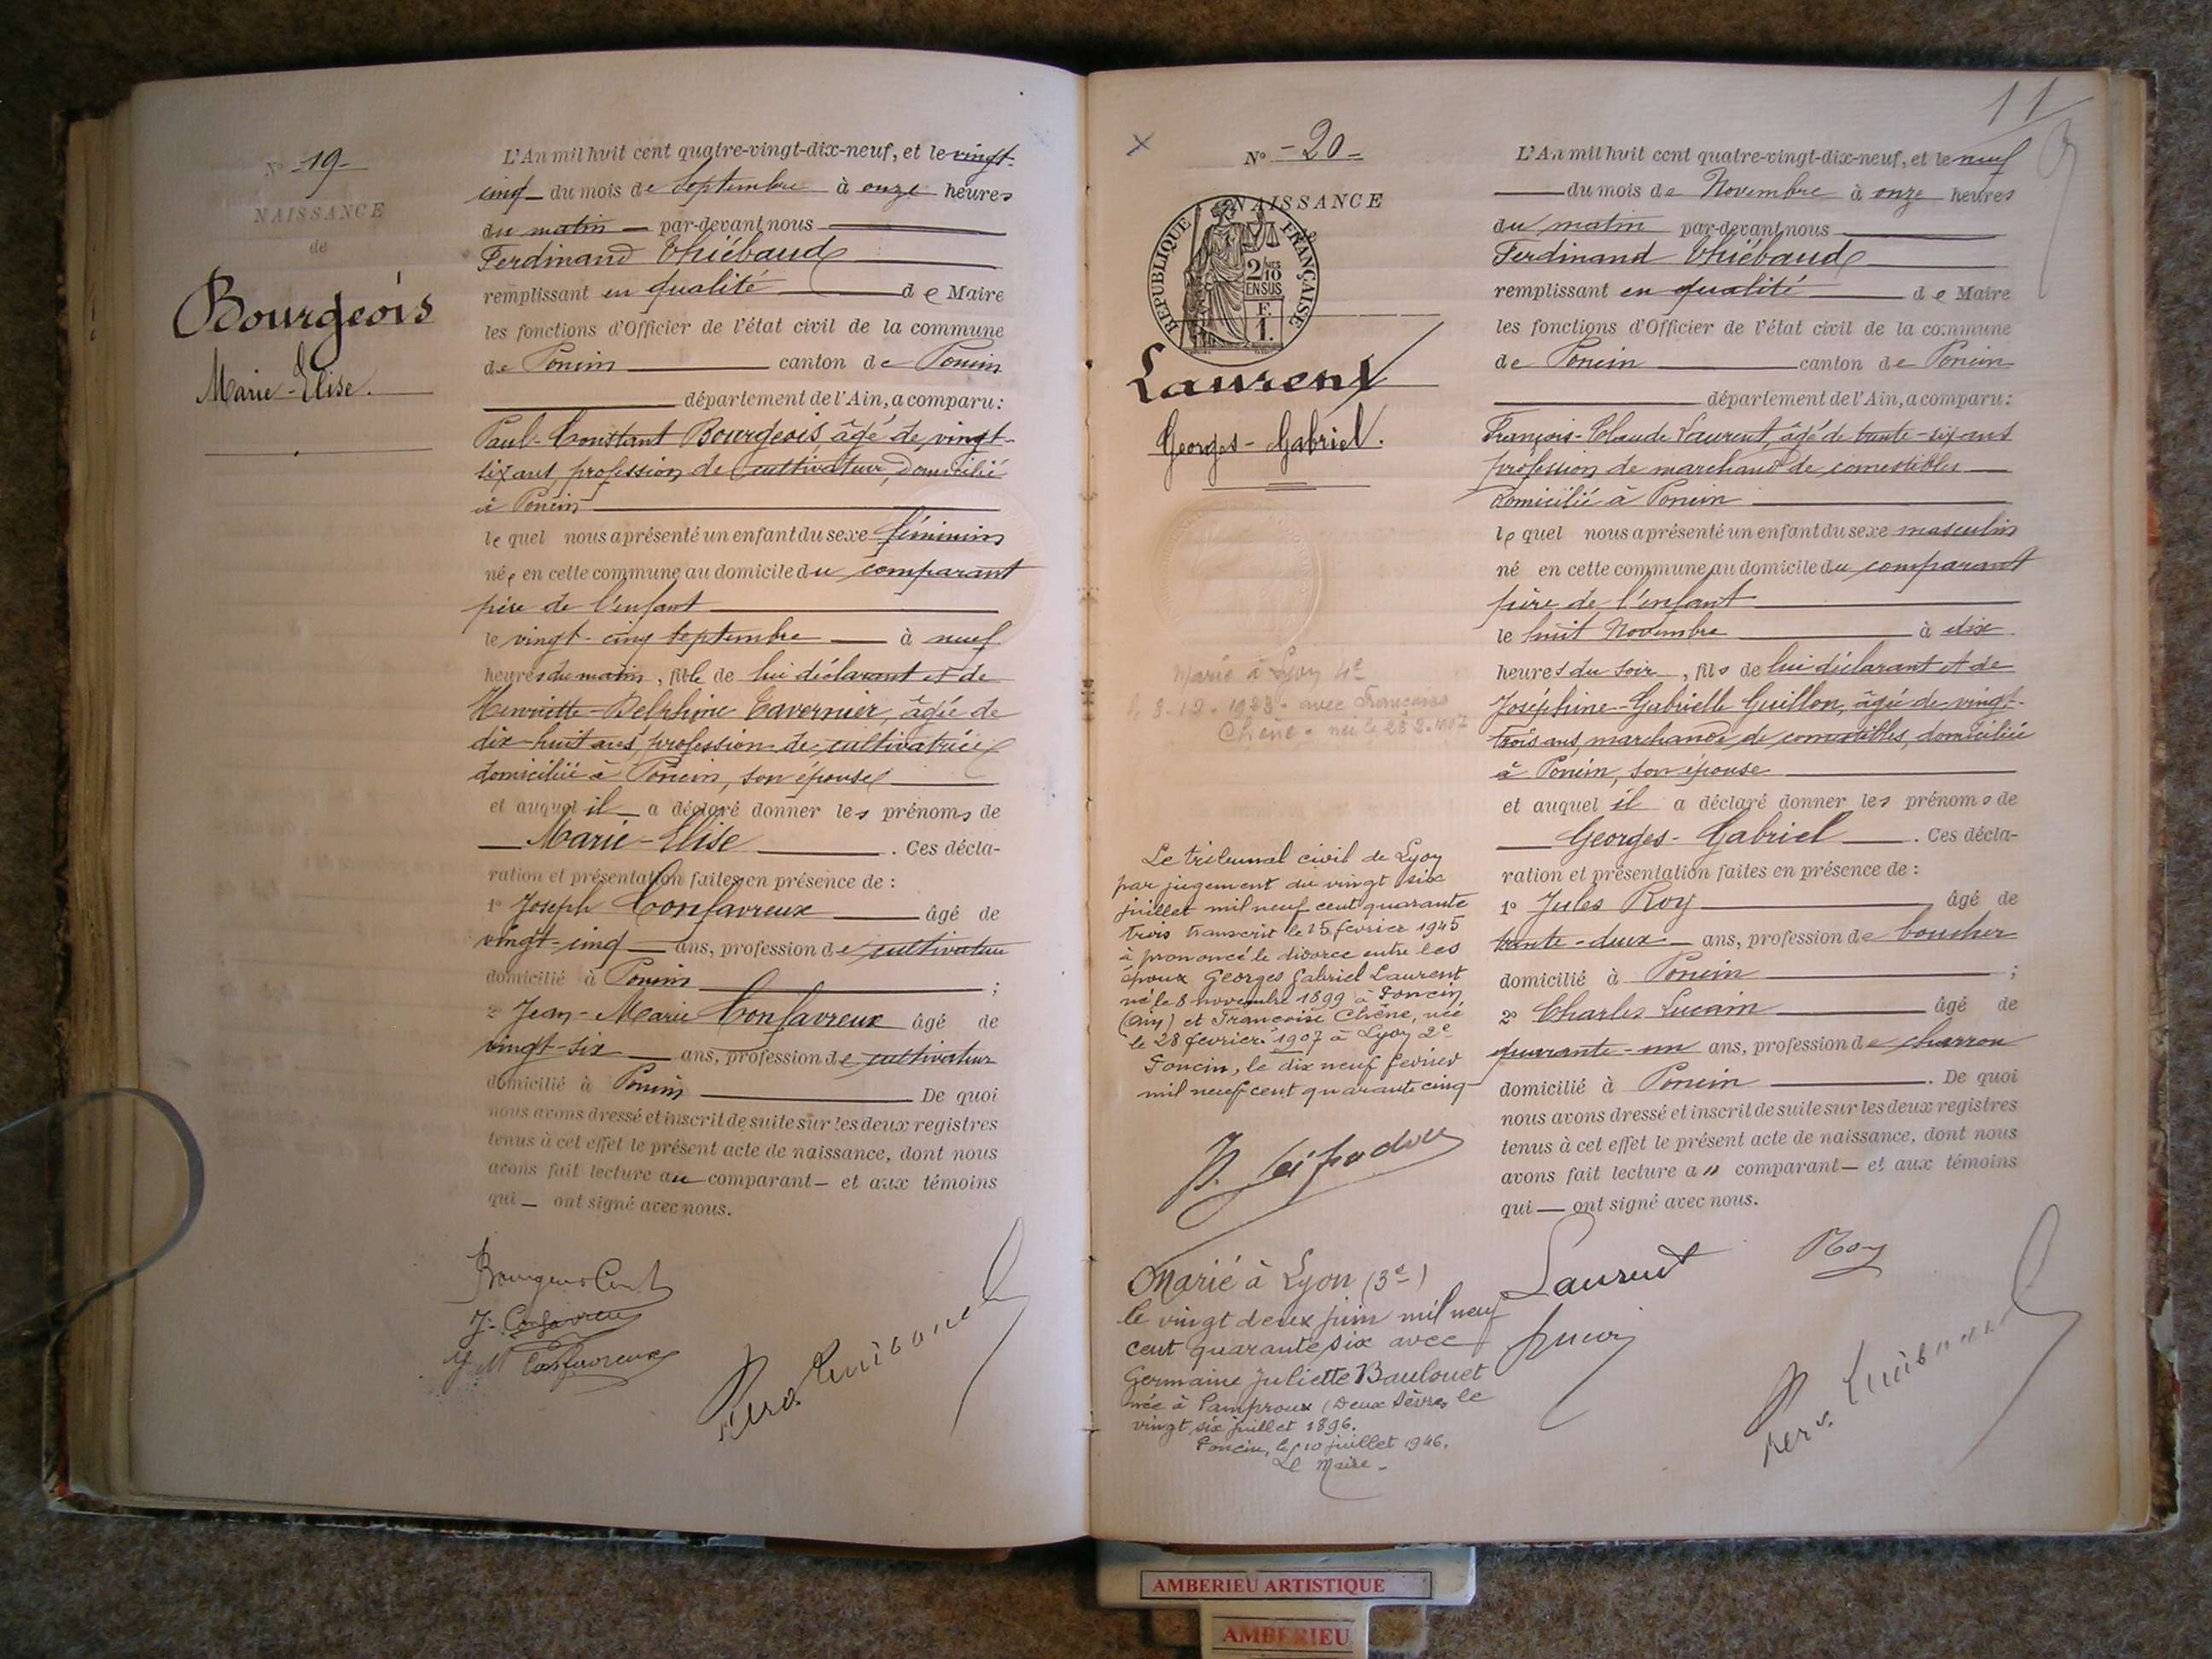 N° -19-
NAISSANCE
de
Bourgeois
Marie-Elise.
L'An mil huit cent quatre-vingt-dix-neuf, et le vingt-
cinq du mois de Septembre à onze heures
du matin par-devant nous
Ferdinand Thiébaud
remplissant en qualité de Maire
les fonctions d'Officier de l'état civil de la commune
de Poncin canton de Poncin
département de l'Ain, a comparu:
Paul-Constant Bourgeois âgé de vingt-
six ans, profession de cultivateur, domicilié
à Poncin
lequel nous a présenté un enfant du sexe féminin
née en cette commune au domicile du comparant
père de l'enfant
le vingt-cinq Septembre à neuf
heures du matin, fille de lui déclarant et de
Henriette-Delphine Tavernier, âgée de
dix-huit ans, profession de cultivatrice
domiciliée à Poncin, son épouse
et auquel il a déclaré donner les prénoms de
Marie-Elise. Ces décla-
ration et présentation faites en présence de :
1° Joseph Confavreux âgé de
vingt-cinq ans, profession de cultivateur
domicilié à Poncin ;
2° Jean-Marie Confavreux âgé de
vingt-six ans, profession de cultivateur
domicilié à Poncin. De quoi
nous avons dressé et inscrit de suite sur les deux registres
tenus à cet effet le présent acte de naissance, dont nous
avons fait lecture au comparant et aux témoins
qui ont signé avec nous.
J. Confavreux
J M Confavreux
11
N° -20-
NAISSANCE
REPUBLIQUE FRANÇAISE
2/10
EN SUS
F.
1.
Laurent
Georges-Gabriel.
Marié à Lyon 4e
le 8-12-1928 avec Françoise
Chêne née le 28-2-1907
Le tribunal civil de Lyon
par jugement du vingt six
juillet mil neuf cent quarante
trois transcrit le 15 février 1945
à prononcé le divorce entre les
époux Georges Gabriel Laurent
né le 8 novembre 1899 à Poncin
(Ain) et Françoise Chêne, née
le 28 février 1907 à Lyon 2e
Poncin, le dix neuf février
mil neuf cent quarante cinq
Marié à Lyon (3e)
le vingt deux juin mil neuf
cent quarante six avec
Germaine Juliette Baulouet
née à Pamproux (Deux Sèvres) le
vingt six juillet 1896.
Poncin, le 10 juillet 1946.
Le Maire -
L'An mil huit cent quatre-vingt-dix-neuf, et le neuf
du mois de Novembre à onze heures
du matin par-devant nous
Ferdinand Thiébaud
remplissant en qualité de Maire
les fonctions d'Officier de l'état civil de la commune
de Poncin canton de Poncin
département de l'Ain, a comparu:
François-Claude Laurent, âgé de trente-six ans
profession de marchand de comestibles
domicilié à Poncin
lequel nous a présenté un enfant du sexe masculin
né en cette commune au domicile du comparant
père de l'enfant
le huit Novembre à dix
heures du soir, fils de lui déclarant et de
Joséphine-Gabrielle Guillon, âgée de vingt-
trois ans, marchande de comestibles, domiciliée
à Poncin, son épouse
et auquel il a déclaré donner les prénoms de
Georges-Gabriel. Ces décla-
ration et présentation faites en présence de :
1° Jules Roy âgé de
trente-deux ans, profession de boucher
domicilié à Poncin ;
2° Charles Lucain âgé de
quarante-un ans, profession de charron
domicilié à Poncin. De quoi
nous avons dressé et inscrit de suite sur les deux registres
tenus à cet effet le présent acte de naissance, dont nous
avons fait lecture a" comparant et aux témoins
qui ont signé avec nous.
Laurent Roy
AMBERIEU ARTISTIQUE
AMBERIEU